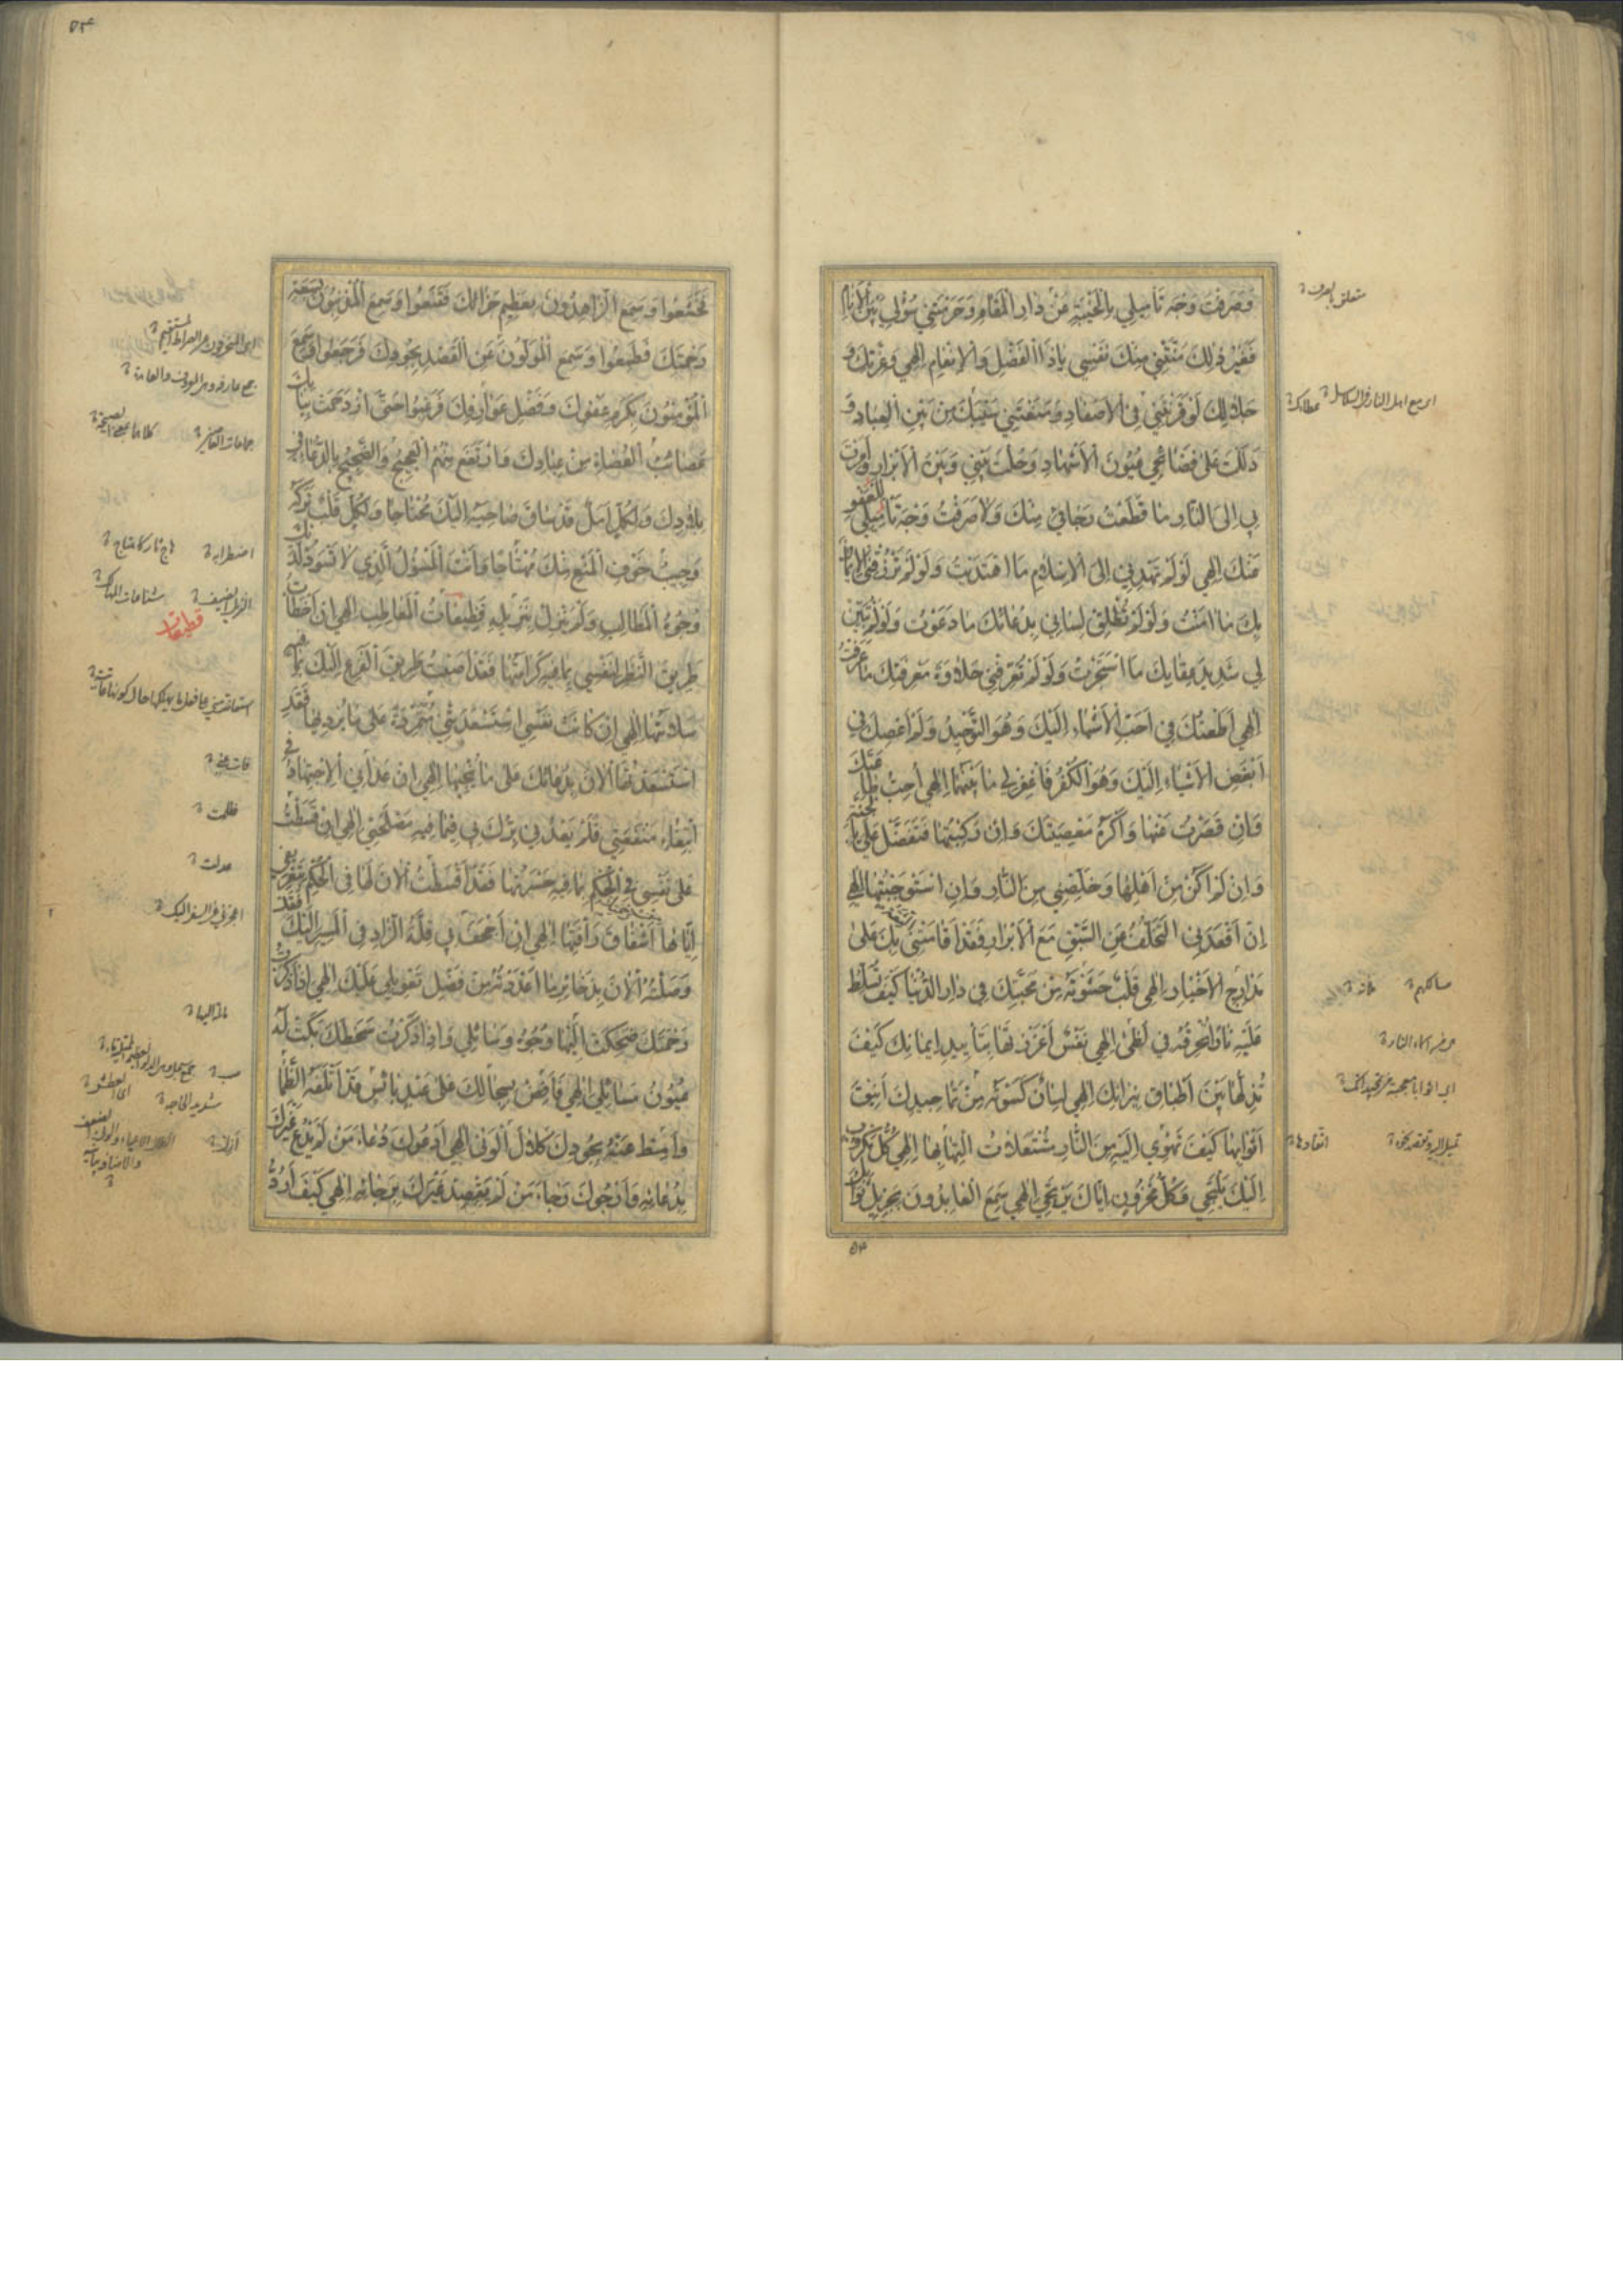 وَصَرَفْتَ وَجْهَ تَأْمِيلِي بِالْخَيْبَةِ عَنْ دَارِ الْمَقَامِ وَحَرَمْتَنِي سُؤْلِي بَيْنَ الْأَنَامِ
فَغَيْرُ ذٰلِكَ مَنَّتْنِي مِنْكَ نَفْسِي يَا ذَا الْفَضْلِ وَالْإِنْعَامِ إِلٰهِي وَعِزَّتِكَ وَ
جَلَالِكَ لَوْ قَرَنْتَنِي فِي الْأَصْفَادِ وَمَنَعْتَنِي سَيْبَكَ مِنْ بَيْنِ الْعِبَادِ وَ
دَلَلْتَ عَلَى فَضَائِحِي عُيُونَ الْأَشْهَادِ وَحُلْتَ بَيْنِي وَبَيْنَ الْأَبْرَارِ وَأَمَرْتَ
بِي إِلَى النَّارِ مَا قَطَعْتُ رَجَائِي مِنْكَ وَلَا صَرَفْتُ وَجْهَ تَأْمِيلِي لِلْعَفْوِ
عَنْكَ إِلٰهِي لَوْ لَمْ تَهْدِنِي إِلَى الْإِسْلَامِ مَا اهْتَدَيْتُ وَلَوْ لَمْ تَرْزُقْنِي الْإِيمَانَ
بِكَ مَا آمَنْتُ وَلَوْ لَمْ تُطْلِقْ لِسَانِي بِدُعَائِكَ مَا دَعَوْتُ وَلَوْ لَمْ تُبَيِّنْ
لِي شَدِيدَ عِقَابِكَ مَا اسْتَجَرْتُ وَلَوْ لَمْ تُعَرِّفْنِي حَلَاوَةَ مَعْرِفَتِكَ مَا عَرَفْتُ
إِلٰهِي أَطَعْتُكَ فِي أَحَبِّ الْأَشْيَاءِ إِلَيْكَ وَهُوَ التَّوْحِيدُ وَلَمْ أَعْصِكَ فِي
أَبْغَضِ الْأَشْيَاءِ إِلَيْكَ وَهُوَ الْكُفْرُ فَاغْفِرْ لِي مَا بَيْنَهُمَا إِلٰهِي أُحِبُّ طَاعَتَكَ
وَإِنْ قَصَرْتُ عَنْهَا وَأَكْرَهُ مَعْصِيَتَكَ وَإِنْ رَكِبْتُهَا فَتَفَضَّلْ عَلَيَّ بِالْجَنَّةِ
وَإِنْ لَمْ أَكُنْ مِنْ أَهْلِهَا وَخَلِّصْنِي مِنَ النَّارِ وَإِنِ اسْتَوْجَبْتُهَا إِلٰهِي
إِنْ أَقْعَدَنِي التَّخَلُّفُ عَنِ السَّبْقِ مَعَ الْأَبْرَارِ فَقَدْ أَقَامَتْنِي الثِّقَةُ بِكَ عَلَى
مَدَارِجِ الْأَخْيَارِ إِلٰهِي قَلْبٌ حَشَوْتَهُ مِنْ مَحَبَّتِكَ فِي دَارِ الدُّنْيَا كَيْفَ تُسَلِّطُ
عَلَيْهِ نَارًا تُحْرِقُهُ فِي لَظَى إِلٰهِي نَفْسٌ أَعْزَزْتَهَا بِتَأْيِيدِ إِيمَانِكَ كَيْفَ
تُذِلُّهَا بَيْنَ أَطْبَاقِ نِيرَانِكَ إِلٰهِي لِسَانٌ كَسَوْتَهُ مِنْ تَمَاجِيدِكَ أَنِيقَ
أَثْوَابِهَا كَيْفَ تَهْوِي إِلَيْهِ مِنَ النَّارِ مُشْتَعِلَاتُ الْتِهَابِهَا إِلٰهِي كُلُّ مَكْرُوبٍ
إِلَيْكَ يَلْتَجِي وَكُلُّ مَحْزُونٍ إِيَّاكَ يَرْتَجِي إِلٰهِي سَمِعَ الْعَابِدُونَ بِجَزِيلِ ثَوَابِكَ
متعلق بصرف
عطائك
مسالكهم
۵۳
۵۴
فَخَشَعُوا وَسَمِعَ الزَّاهِدُونَ بِعَظِيمِ جَزَائِكَ فَقَنِعُوا وَسَمِعَ الْمُذْنِبُونَ بِسَعَةِ
رَحْمَتِكَ فَطَمِعُوا وَسَمِعَ الْمُوَلُّونَ عَنِ الْقَصْدِ بِجُودِكَ فَرَجَعُوا وَسَمِعَ
الْمُؤْمِنُونَ بِكَرَمِ عَفْوِكَ وَفَضْلِ عَوَارِفِكَ فَرَغِبُوا حَتَّى ازْدَحَمَتْ بِبَابِكَ
عَصَائِبُ الْعُصَاةِ مِنْ عِبَادِكَ وَارْتَفَعَ مِنْهُمُ الْعَجِيجُ وَالضَّجِيجُ بِالدُّعَاءِ فِي
بِلَادِكَ وَلِكُلٍّ أَمَلٌ قَدْ سَاقَ صَاحِبَهُ إِلَيْكَ مُحْتَاجًا وَلِكُلٍّ قَلْبٌ تَرَكَهُ
وَجِيبُ خَوْفِ الْمَنْعِ مِنْكَ مُهْتَاجًا وَأَنْتَ الْمَسْئُولُ الَّذِي لَا تَسْوَدُّ لَدَيْهِ
وُجُوهُ الْمَطَالِبِ وَلَمْ يَنْزِلْ بِنَزِيلِهِ فَظِيعَاتُ الْمَعَاطِبِ إِلٰهِي إِنْ أَخْطَأْتُ
طَرِيقَ النَّظَرِ لِنَفْسِي بِمَا فِيهِ كَرَامَتُهَا فَقَدْ أَصَبْتُ طَرِيقَ الْفَزَعِ إِلَيْكَ بِمَا فِيهِ
سَلَامَتُهَا إِلٰهِي إِنْ كَانَتْ نَفْسِي اسْتَسْعَدَتْنِي مُتَمَرِّدَةً عَلَى مَا يُرْدِيهَا فَقَدِ
اسْتَسْعَدْتُهَا الْآنَ بِدُعَائِكَ عَلَى مَا يُنْجِيهَا إِلٰهِي إِنْ عَدَانِي الْاِجْتِهَادُ فِي
ابْتِغَاءِ مَنْفَعَتِي فَلَمْ يَعْدُنِي بِرُّكَ بِي فِيمَا فِيهِ مَصْلَحَتِي إِلٰهِي إِنْ قَسَطْتُ
عَلَى نَفْسِي فِي الْحُكْمِ بِمَا فِيهِ حَسْرَتُهَا فَقَدْ أَقْسَطْتُ الْآنَ لَهَا فِي الْحُكْمِ بِتَعْرِيفِي
إِيَّاهَا إِشْفَاقَ رَأْفَتِهَا إِلٰهِي إِنْ أَجْحَفَ بِي قِلَّةُ الزَّادِ فِي الْمَسِيرِ إِلَيْكَ فَقَدْ
وَصَلْتُهُ الْآنَ بِذَخَائِرِ مَا أَعْدَدْتُهُ مِنْ فَضْلِ تَعْوِيلِي عَلَيْكَ إِلٰهِي إِذَا ذَكَرْتُ
رَحْمَتَكَ ضَحِكَتْ إِلَيْهَا وُجُوهُ وَسَائِلِي وَإِذَا ذَكَرْتُ سَخَطَكَ بَكَتْ لَهُ
عُيُونُ مَسَائِلِي إِلٰهِي فَأَفِضْ بِسِجَالِكَ عَلَى عَبْدٍ بَائِسٍ قَدْ أَتْلَفَهُ الظَّمَأُ
وَأَمِطْ عَنْهُ بِجُودِكَ كَلَالَ الْوَنَى إِلٰهِي أَدْعُوكَ دُعَاءَ مَنْ لَمْ يَدْعُ غَيْرَكَ
بِدُعَائِهِ وَأَرْجُوكَ رَجَاءَ مَنْ لَمْ يَقْصِدْ غَيْرَكَ بِرَجَائِهِ إِلٰهِي كَيْفَ أَرُدُّ
اضطرابه
ظلمت
عدلت